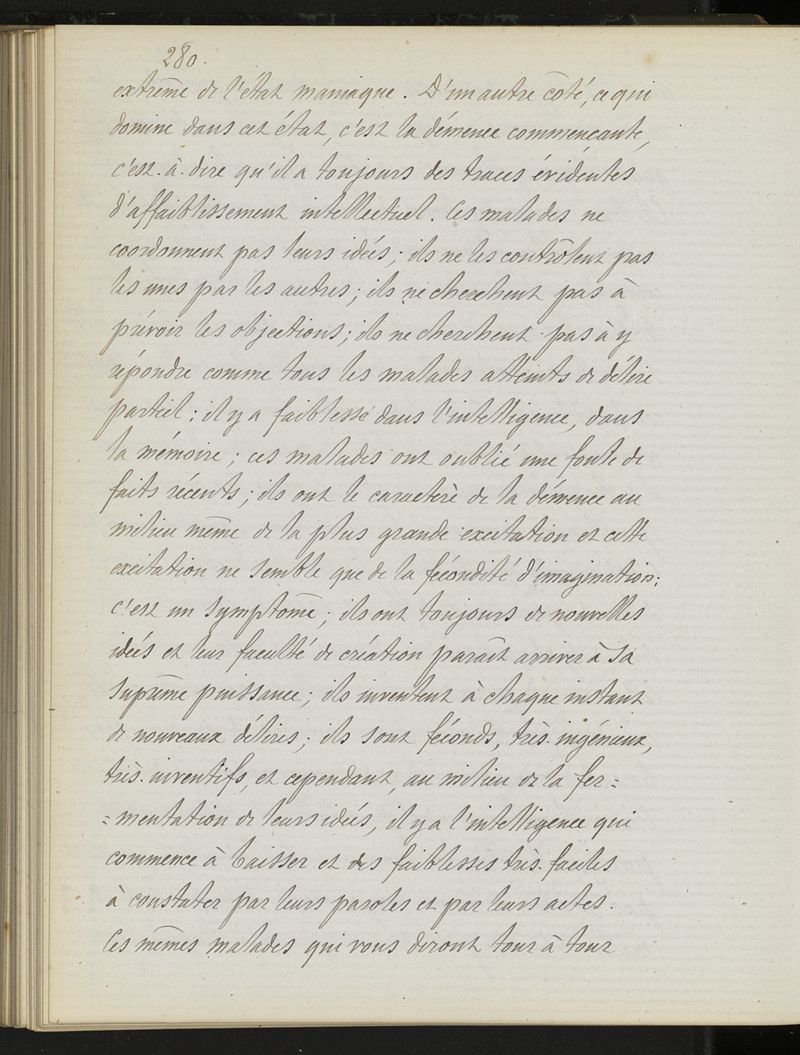 280.
extrême de l'état maniaque. D'un autre côté, ce qui
domine dans cet état, c'est la démence commençante,
c'est-à-dire qu'il a toujours des traces évidentes
d'affaiblissement intellectuel. Ces malades ne
coordonnent pas leurs idées; ils ne les contrôlent pas
les unes par les autres; ils ne cherchent pas à
prévoir les objections; ils ne cherchent pas à y
répondre comme tous les malades atteints de délire
partiel: il y a faiblesse dans l'intelligence, dans
la mémoire; ces malades ont oublié une foule de
faits récents; ils ont le caractère de la démence au
milieu même de la plus grande excitation et cette
excitation ne semble que de la fécondité d'imagination:
c'est un symptome; ils ont toujours de nouvelles
idées et leur faculté de création paraît arriver à sa
suprême puissance; ils inventent à chaque instant
de nouveaux délires; ils sont féconds, très-ingénieux,
très-inventifs, et cependant, au milieu de la fer=
=mentation de leurs idées, il y a l'intelligence qui
commence à baisser et des faiblesses très-faciles
à constater par leurs paroles et par leurs actes.
Ces mêmes malades qui vous diront tour à tour